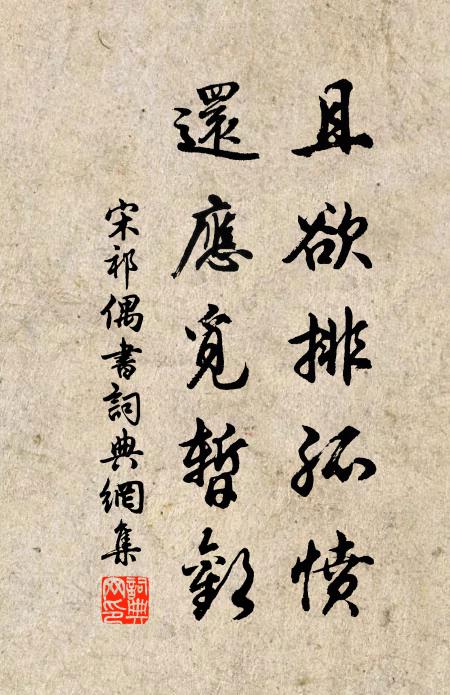 且欲排孤憤
還應覓暫歡
宋祁偶書詞典網集
詞典网印